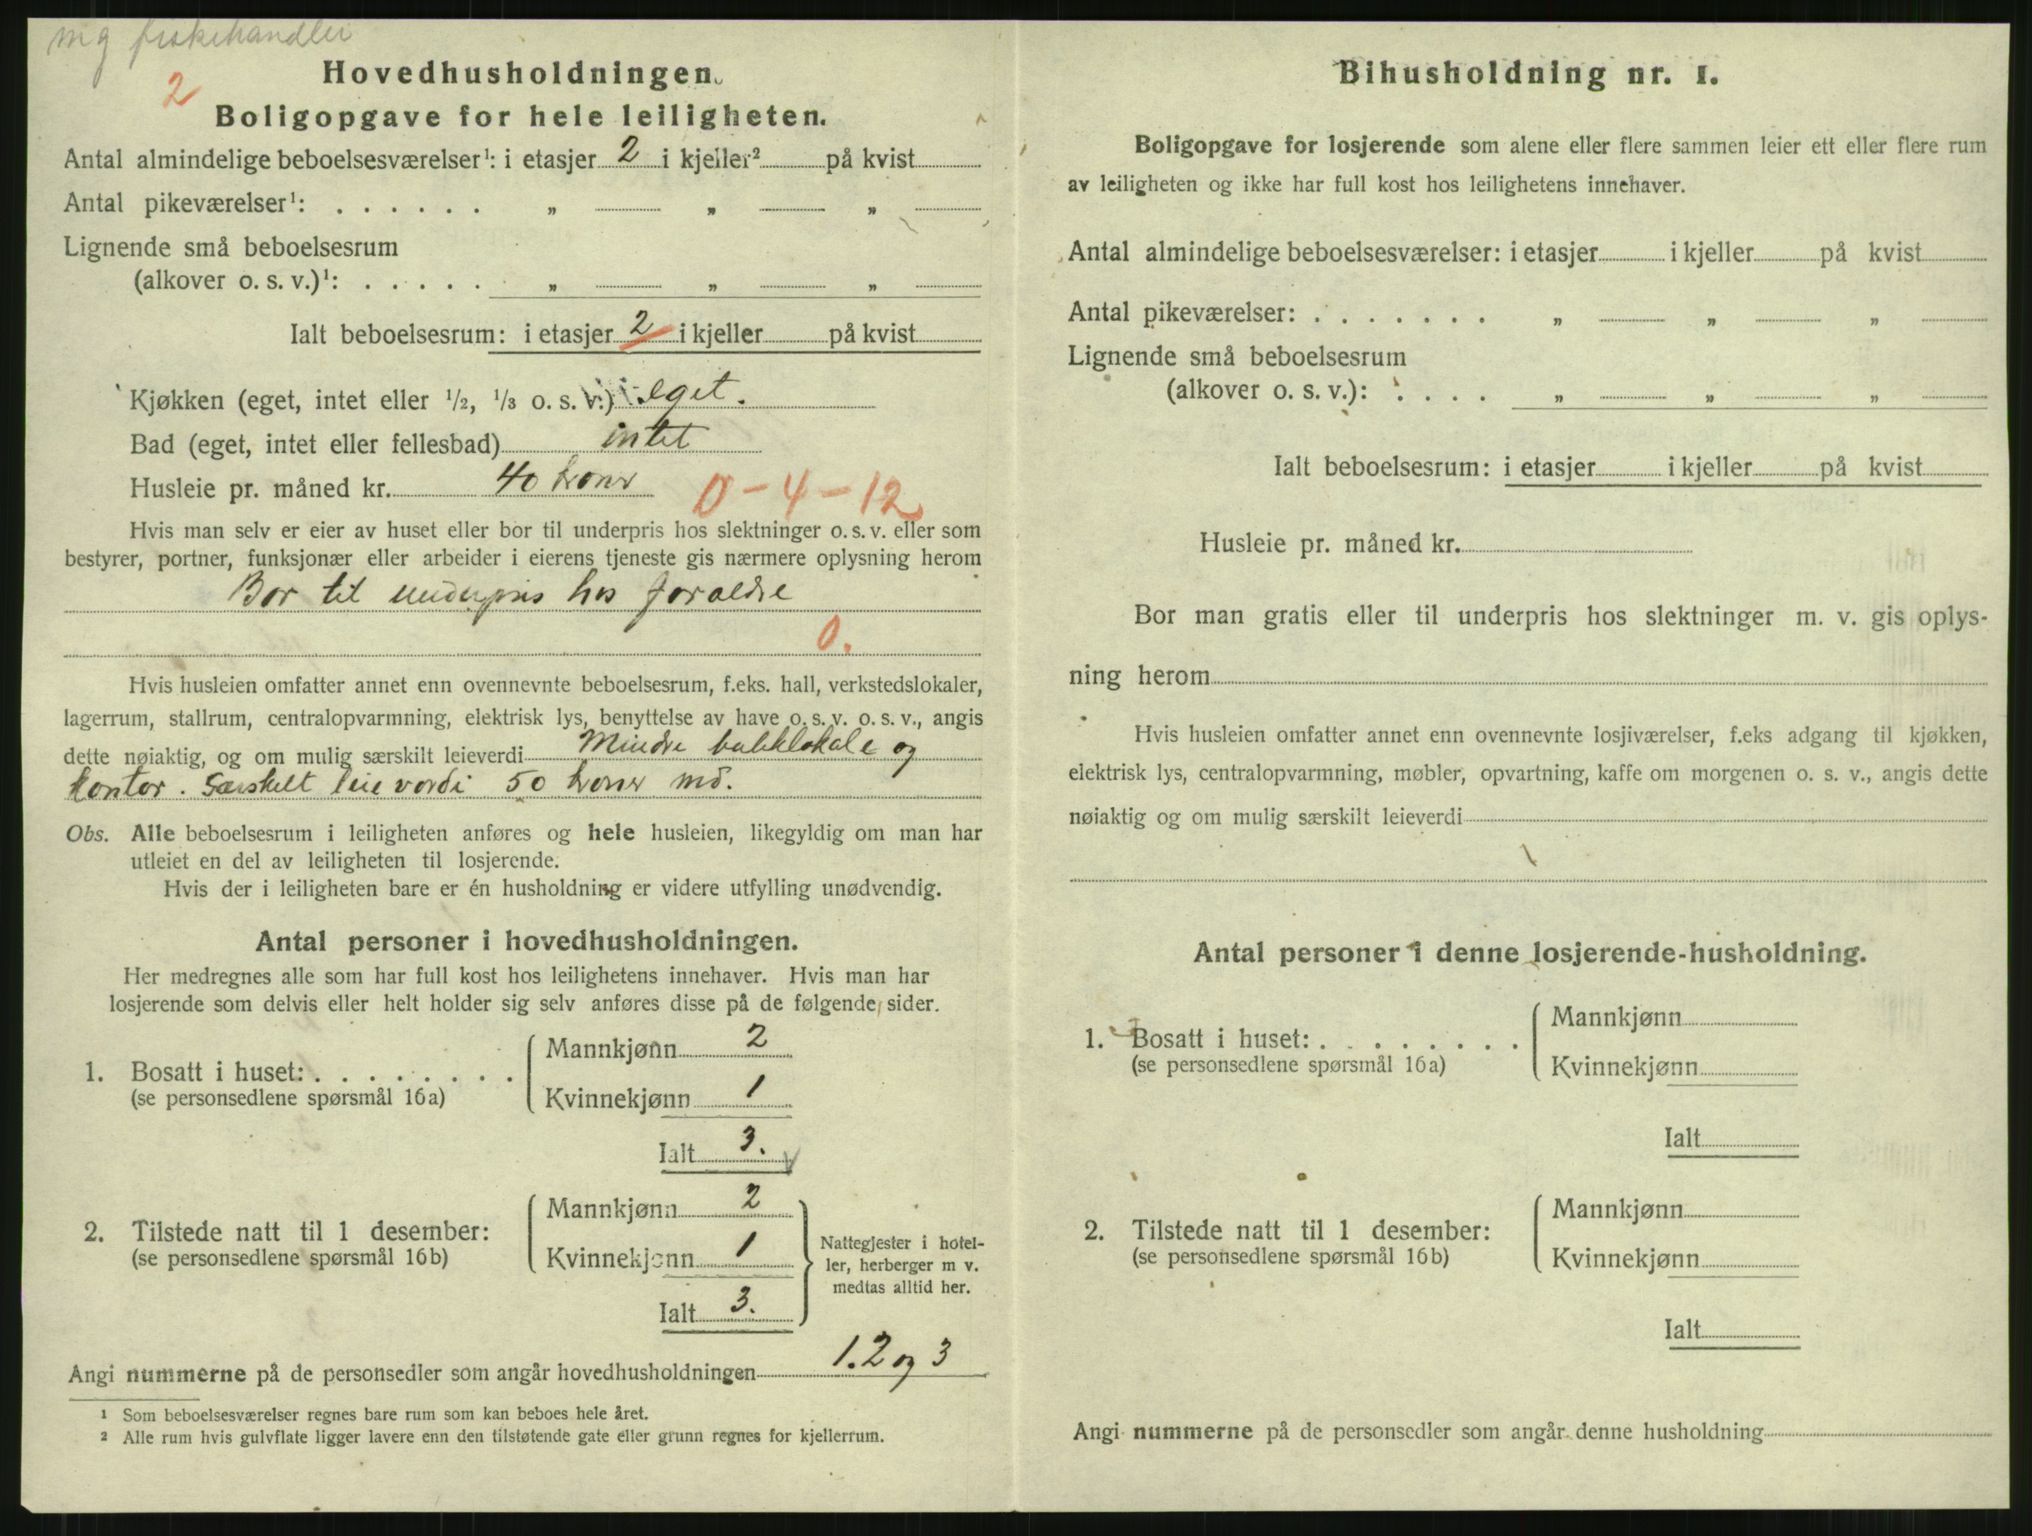 mg fiskehandler
2
Hovedhusholdningen.
Boligopgave for hele leiligheten.
Antal almindelige beboelsesværelser¹: i etasjer 2 i kjeller² på kvist
Antal pikeværelser¹: . . . . . . „ „ „
Lignende små beboelsesrum
(alkover o. s. v.)¹: . . . . . „ „ „
Ialt beboelsesrum: i etasjer 2 i kjeller på kvist
Kjøkken (eget, intet eller 1/2, 1/3 o. s. v.) eget.
Bad (eget, intet eller fellesbad) intet
Husleie pr. måned kr. 40 kroner 0-4-12
Hvis man selv er eier av huset eller bor til underpris hos slektninger o. s. v. eller som
bestyrer, portner, funksjonær eller arbeider i eierens tjeneste gis nærmere oplysning herom
Bor til underpris hos foraldre
0.
Hvis husleien omfatter annet enn ovennevnte beboelsesrum, f.eks. hall, verkstedslokaler,
lagerrum, stallrum, centralopvarmning, elektrisk lys, benyttelse av have o. s. v. o. s. v., angis
dette nøiaktig, og om mulig særskilt leieverdi Mindre butiklokale og
kontor. Særskilt leie verdi 50 kroner md.
Obs. Alle beboelsesrum i leiligheten anføres og hele husleien, likegyldig om man har
utleiet en del av leiligheten til losjerende.
Hvis der i leiligheten bare er én husholdning er videre utfylling unødvendig.
Antal personer i hovedhusholdningen.
Her medregnes alle som har full kost hos leilighetens innehaver. Hvis man har
losjerende som delvis eller helt holder sig selv anføres disse på de følgende sider.
1. Bosatt i huset: . . . . . . . .
(se personsedlene spørsmål 16a)
Mannkjønn 2
Kvinnekjønn 1
Ialt 3.
2. Tilstede natt til 1 desember:
(se personsedlene spørsmål 16b)
Mannkjønn 2
Kvinnekjønn 1
Ialt 3.
Nattegjester i hotel-
ler, herberger m v.
medtas alltid her.
Angi nummerne på de personsedler som angår hovedhusholdningen 1.2 og 3
¹ Som beboelsesværelser regnes bare rum som kan beboes hele året.
² Alle rum hvis gulvflate ligger lavere enn den tilstøtende gate eller grunn regnes for kjellerrum.
Bihusholdning nr. 1.
Boligopgave for losjerende som alene eller flere sammen leier ett eller flere rum
av leiligheten og ikke har full kost hos leilighetens innehaver.
Antal almindelige beboelsesværelser: i etasjer i kjeller på kvist
Antal pikeværelser: . . . . . . . „ „ „
Lignende små beboelsesrum
(alkover o. s. v.): . . . . „ „ „
Ialt beboelsesrum: i etasjer i kjeller på kvist
Husleie pr. måned kr.
Bor man gratis eller til underpris hos slektninger m. v. gis oplys-
ning herom
Hvis husleien omfatter annet enn ovennevnte losjiværelser, f.eks adgang til kjøkken,
elektrisk lys, centralopvarmning, møbler, opvartning, kaffe om morgenen o. s. v., angis dette
nøiaktig og om mulig særskilt leieverdi
Antal personer i denne losjerende-husholdning.
1. Bosatt i huset: . . . . . . . .
(se personsedlene spørsmål 16a)
Mannkjønn
Kvinnekjønn
Ialt
2. Tilstede natt til 1 desember:
(se personsedlene spørsmål 16b)
Mannkjønn
Kvinnekjønn
Ialt
Angi nummerne på de personsedler som angår denne husholdning